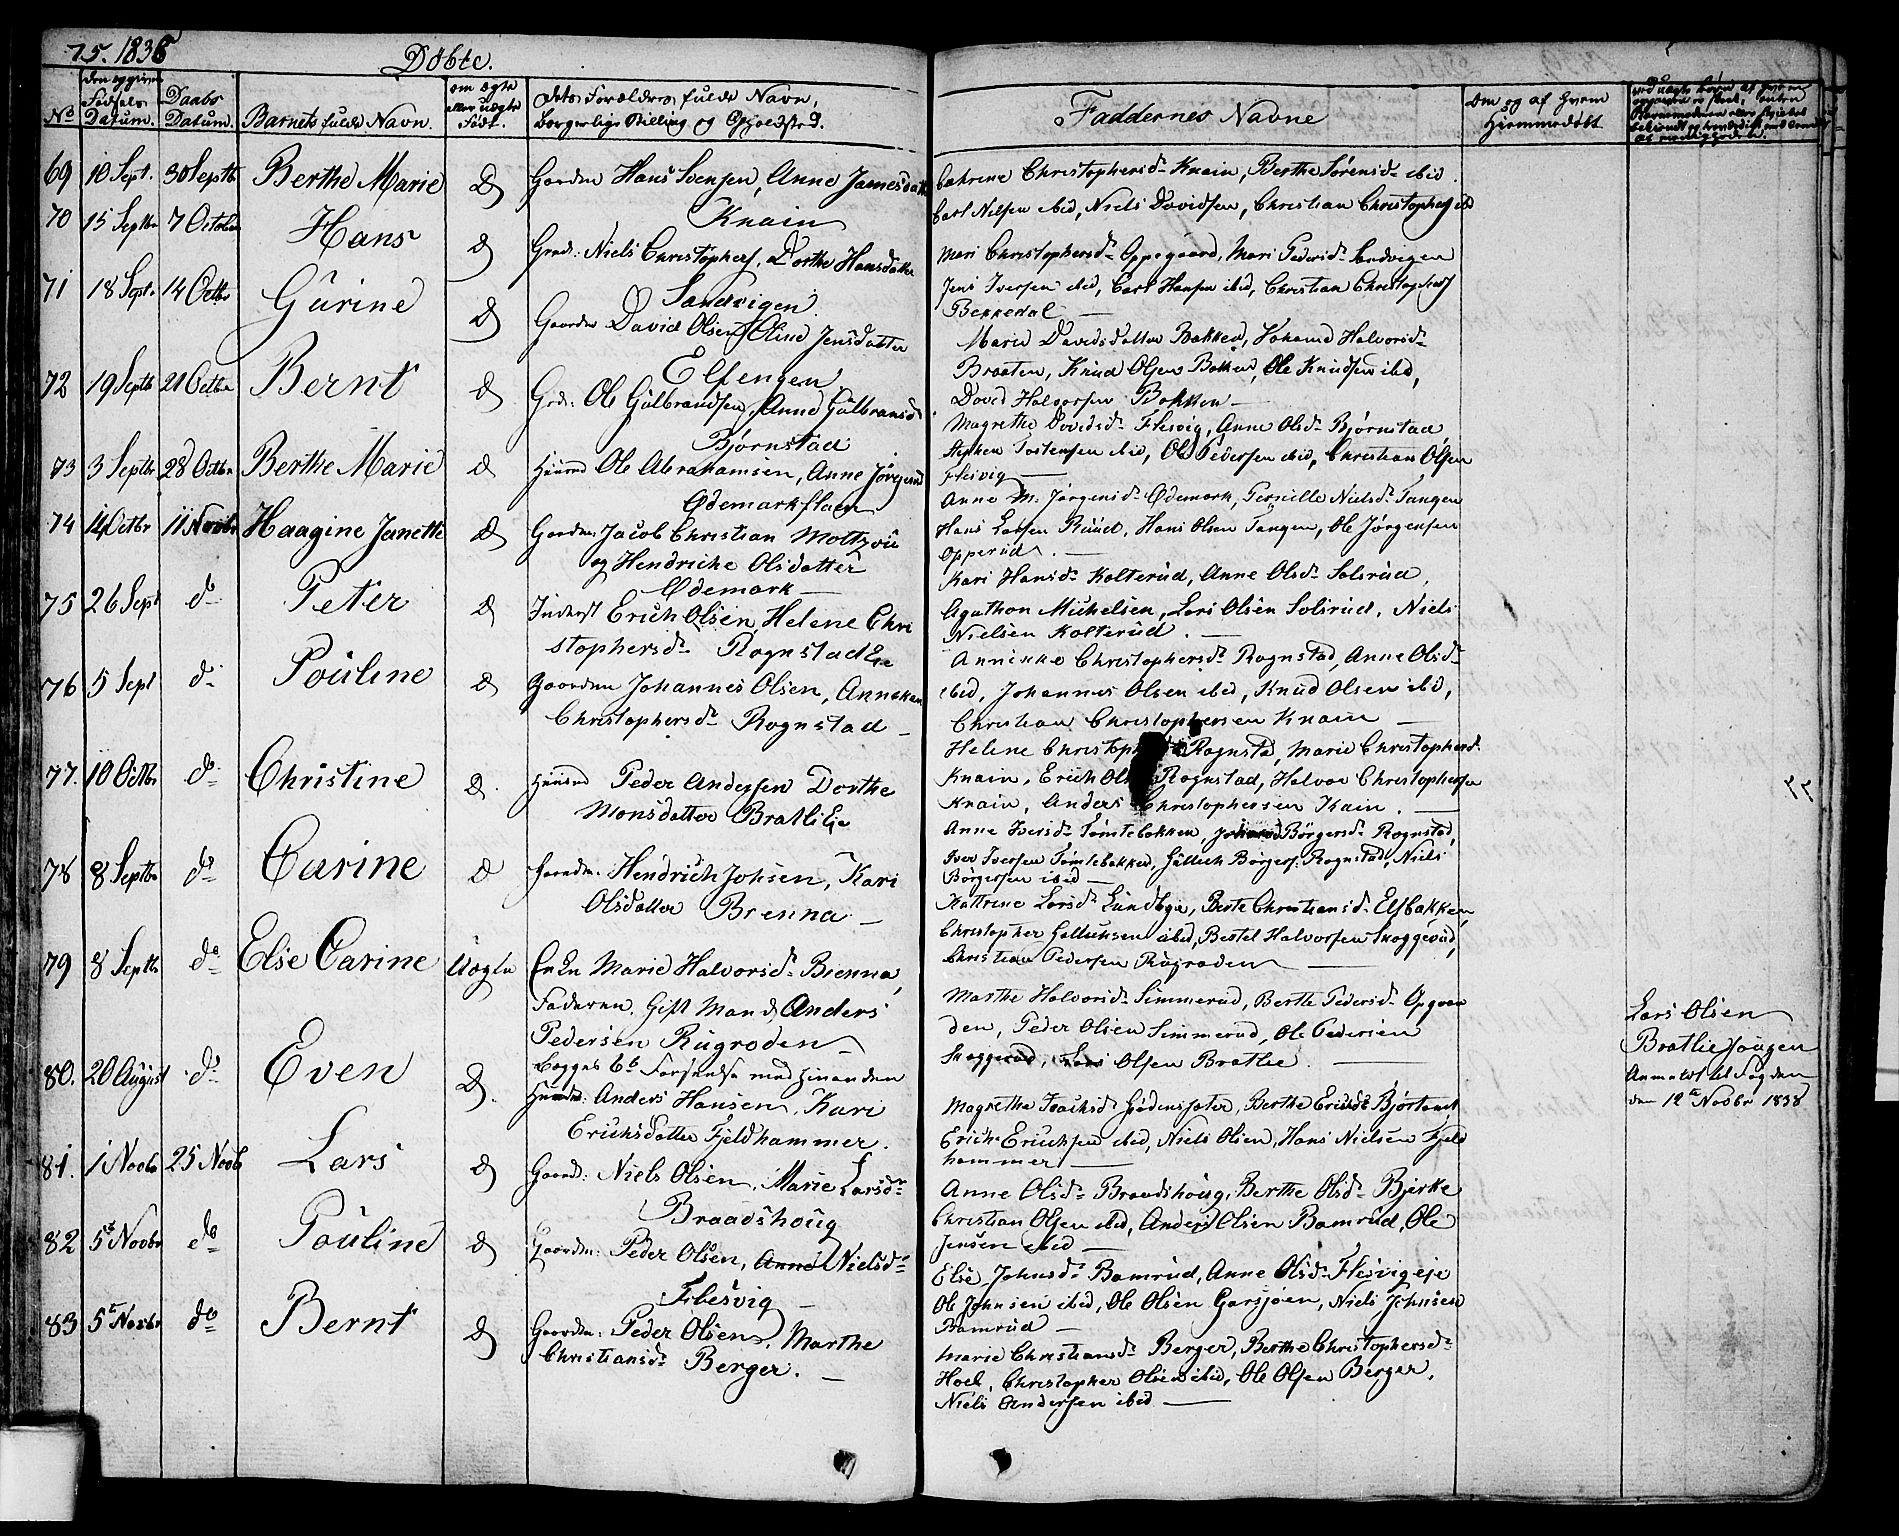 75. 1838
Døbte.
No
Fødsels Datum.
Daabs Datum.
Barnets fulde Navn.
om ægte eller uægte Født.
dets Forældres fulde Navn,
borgerlige Stilling og Opholdsted.
Faddernes Navne
Om og af Hvem Hjemmedøbt
69 10 Sept. 30 Septbr Berthe Marie
Gaardm Hans Svensen, Anne
Knain
Christophersdr Knain, Berthe Sørensdr ibid.
Carl Nilsen ibid, Niels Davidsen, Christian
70 15 Septbr 7 October Hans
Niels Christophers, Dorthe Hansdatter
Sandvigen
Mari Christophersdr Oppegaard, Mari Pedersdr Sandvigen
Jens Iversen ibid, Carl Hansen ibid, Christian
71 18 Sept. 14 Octbr Gurine
Gaardm David Olsen, Oline Jensdatter
Elfengen
Marie Davidsdatter Bakken, Halvorsdr
Braaten, Knud Olsen Bakken, Ole Knudsen ibid,
David Halvorsen Bakken
72 19 Septbr 21 Octbr Bernt
Grd: Ole Gulbrandsen, Anne Gulbransd
Bjørnstad
Magrethe Davidsdr Flesvig, Anne Olsdr Bjørnstad
Tostensen ibid, Ole Pedersen ibid, Christian Olsen
Flesvig
73 3 Septbr 28 Octbr Berthe Marie
Ole Abrahamsen, Anne
Ødemark
Anne M. Jørgensdr Ødemark, Pernille Nielsdr Tangen
Hans Larsen Ruud, Hans Olsen Tangen, Ole Jørgensen
Opperud
74 14 Octbr 11 Novbr Haagine Janette
Gaardm Jacob Christian
og Hendriche Olsdatter
Ødemark
Kari Hansdr Kolterud, Anne Olsdr Solsrud,
Agathon Michelsen, Lars Olsen Solsrud, Niels
Nielsen Kolterud.
75 26 Sept do Peter
Inderst Erich Olsen, Helene Chri
stophersdr Rognstad
Annikke Christophersdr Rognstad, Anne Olsdr
ibid, Johannes Olsen ibid, Knud Olsen ibid,
Christian Christophersen Knain
76 5 Sept do Pouline
Gaardm Johannes Olsen, Anneken
Christophersdr Rognstad
Helene Rognstad, Marie Christophersd
Knain, Erich Rognstad, Halvor Christophersen
Knain, Anders Christophersen Knain.
77. 10 Octbr do Christine
Peder Andersen Dorthe
Monsdatter Bratlie
Anne Iversdr Tømtebakken, Børgersdr Rognstad,
Iver Iversen Tømtebakken, Børgers. Rognstad, Niels
Børgersen ibid
78 8 Septbr do Carine
Gaardm: Hendrich Johsen, Kari
Olsdatter Brenna
Kattrine Larsdr Lundbye, Berte Christiansdr Elfbakken,
Christopher ibid, Bertel Halvorsen Skoggerud,
Christian Pedersen Rugroden
79 8 Septbr do Else Carine Uægte
Marie Halvorsdr Brenna,
Faderen Gift Mand, Anders
Pedersen Rugroden
Begges Forseelse med hinanden
Marthe Halvorsdr Simmerud, Berthe Pedersdr
Peder Olsen Simmerud, Ole Pedersen
Skoggerud, Lars Olsen Bratlie.
Lars Olsen
Bratlie
Anmeldt til Fogden
den 12te Novbr 1838
80. 20 August do Even
Anders Hansen, Kari
Erichsdatter Fjeldhammer.
Magrethe Berthe
Erich Erichsen ibid, Niels Olsen, Hans Nielsen Fjeld
hammer
81. 1 Novbr 25 Novb Lars
Gaard: Niels Olsen, Marie Larsdr
Braadshoug
Anne Olsdr Braadshoug, Berthe Olsdr Bjerke
Christian Olsen ibid, Anders Olsen Bamrud, Ole
Jensen ibid
82 5t Novbr do Pouline
Gaardm: Peder Olsen, Anne Nielsdr
Flesvig
Else Johnsdr Bamrud, Anne Olsdr Flesvigeje
Ole Johnsen ibid, Ole Olsen Garsjøen, Niels Johnsen
Bamrud
83 5t Novbr do Bernt
Gaardm: Peder Olsen, Marthe
Christiansdr Berger.
Marie Christiansdr Berger, Berthe Christophersdr
Hoel, Christopher Olsen ibid, Ole Olsen Berger,
Niels Andersen ibid